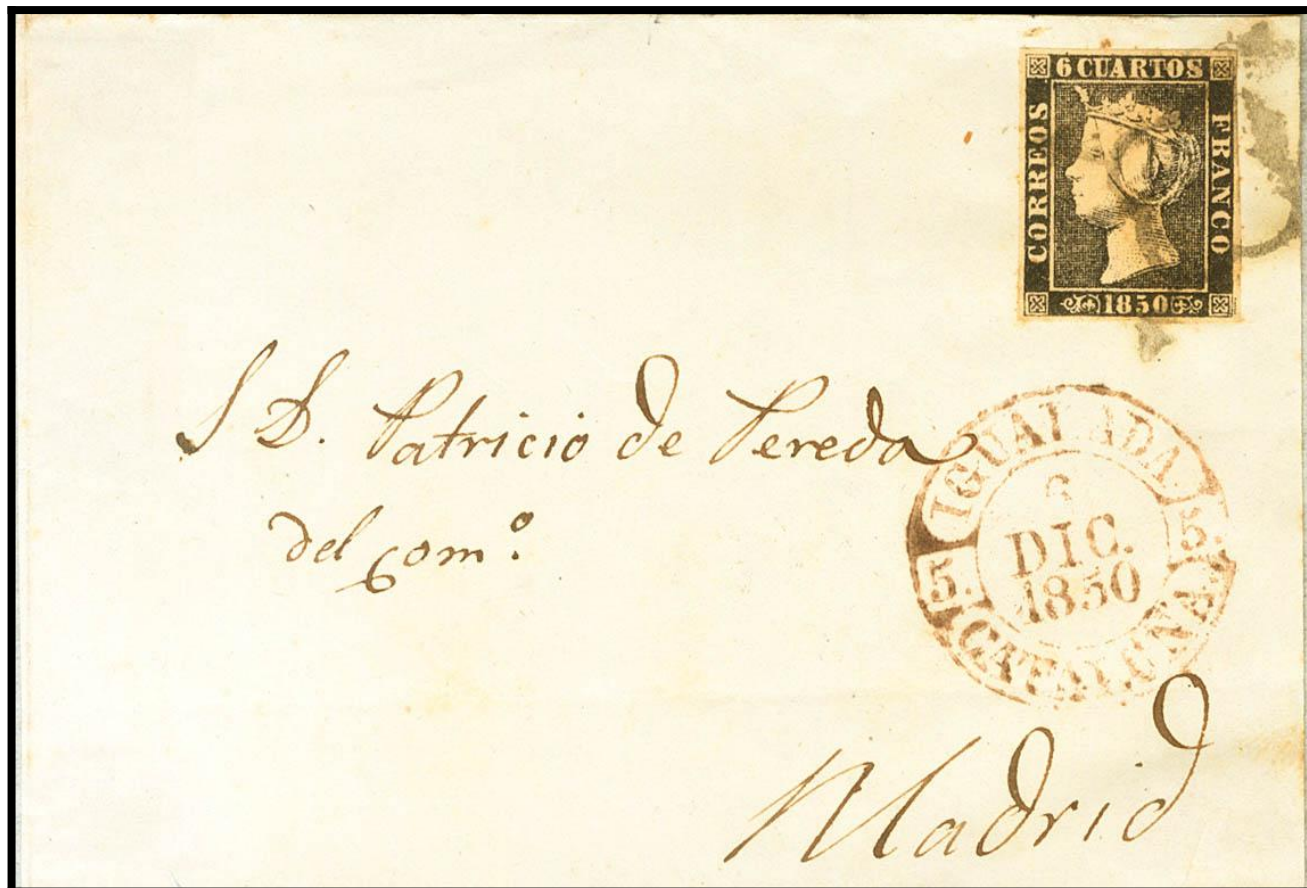 6 CUARTOS
CORREOS
FRANCO
1850
S D. Patricio de Pereda
del comº
IGUALADA.
5. 5.
DIC.
1850
CATALUÑA.
Madrid